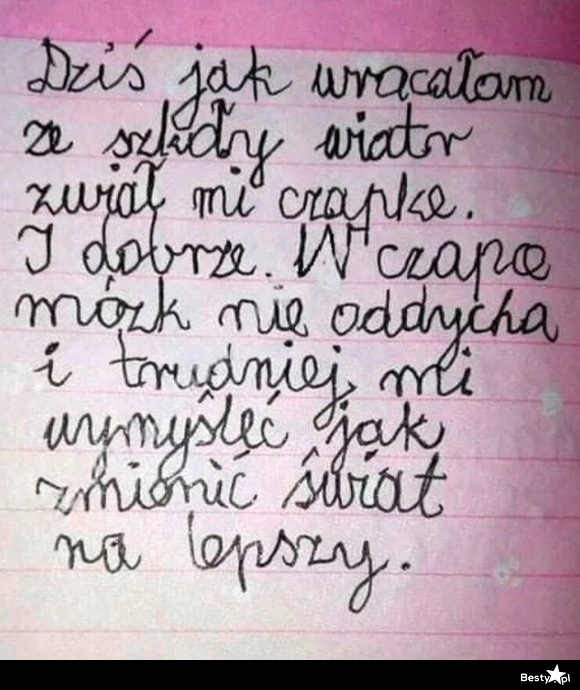 Dziś jak wracałam
ze szkoły wiatr
zwiał mi czapkę.
I dobrze. W czapce
mózk nie oddycha
i trudniej mi
wymyśleć jak
zmienić świat
na lepszy.
Besty.pl